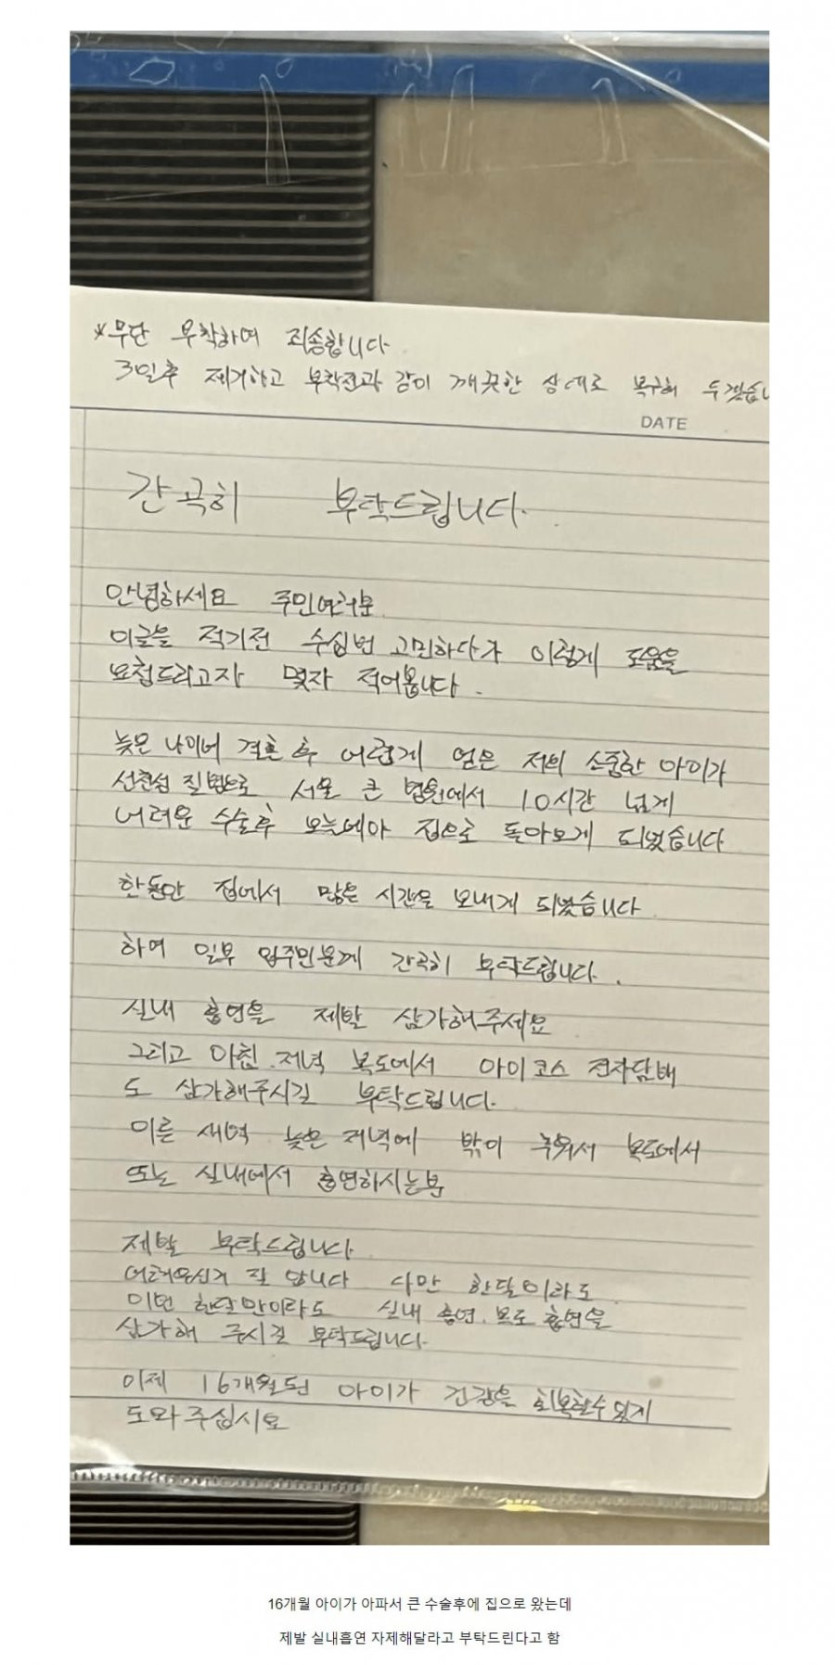 *무단 부착하여 죄송합니다
3일후 제거하고 부착전과 같이 깨끗한 상태로 복구해 두겠습니
DATE
간곡히 부탁드립니다.
안녕하세요 주민여러분
이글을 적기전 수십번 고민하다가 이렇게 도움을
요청드리고자 몇자 적어봅니다.
늦은 나이에 결혼 후 어렵게 얻은 저희 소중한 아이가
선천성 질병으로 서울 큰 병원에서 10시간 넘게
어려운 수술후 오늘에야 집으로 돌아오게 되었습니다
한동안 집에서 많은 시간을 보내게 되었습니다
하여 일부 입주민분께 간곡히 부탁드립니다.
실내 흡연을 제발 삼가해주세요
그리고 아침.저녁 복도에서 아이코스 전자담배
도 삼가해주시길 부탁드립니다.
이른 새벽 늦은 저녁에 밖이 추워서 복도에서
또는 실내에서 흡연하시는분
제발 부탁드립니다
어려우신거 잘 압니다 다만 한달이라도
이번 한달만이라도 실내 흡연.복도 흡연을
삼가해 주시길 부탁드립니다.
이제 16개월된 아이가 건강을 회복할수있게
도와주십시요
16개월 아이가 아파서 큰 수술후에 집으로 왔는데
제발 실내흡연 자제해달라고 부탁드린다고 함